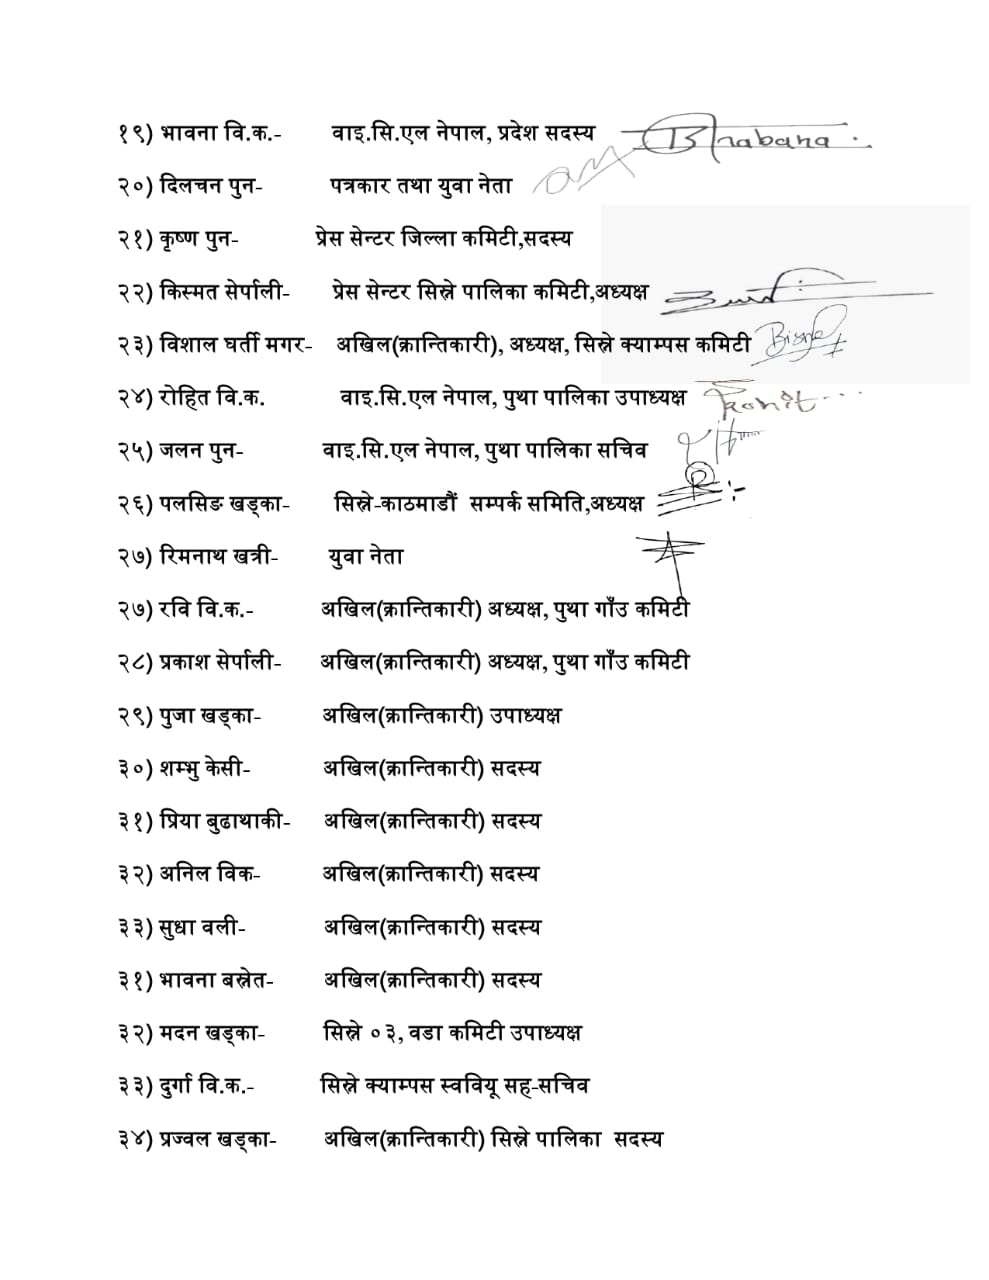 १९) भावना वि.क.- वाइ.सि.एल नेपाल, प्रदेश सदस्य Bhabana
२०) दिलचन पुन- पत्रकार तथा युवा नेता
२१) कृष्ण पुन- प्रेस सेन्टर जिल्ला कमिटी,सदस्य
२२) किस्मत सेर्पाली- प्रेस सेन्टर सिस्ने पालिका कमिटी,अध्यक्ष
२३) विशाल घर्ती मगर- अखिल(क्रान्तिकारी), अध्यक्ष, सिस्ने क्याम्पस कमिटी
२४) रोहित वि.क. वाइ.सि.एल नेपाल, पुथा पालिका उपाध्यक्ष Rohit
२५) जलन पुन- वाइ.सि.एल नेपाल, पुथा पालिका सचिव
२६) पलसिङ खड्का- सिस्ने-काठमाडौं सम्पर्क समिति,अध्यक्ष
२७) रिमनाथ खत्री- युवा नेता
२७) रवि वि.क.- अखिल(क्रान्तिकारी) अध्यक्ष, पुथा गाँउ कमिटी
२८) प्रकाश सेर्पाली- अखिल(क्रान्तिकारी) अध्यक्ष, पुथा गाँउ कमिटी
२९) पुजा खड्का- अखिल(क्रान्तिकारी) उपाध्यक्ष
३०) शम्भु केसी- अखिल(क्रान्तिकारी) सदस्य
३१) प्रिया बुढाथाकी- अखिल(क्रान्तिकारी) सदस्य
३२) अनिल विक- अखिल(क्रान्तिकारी) सदस्य
३३) सुधा वली- अखिल(क्रान्तिकारी) सदस्य
३१) भावना बस्नेत- अखिल(क्रान्तिकारी) सदस्य
३२) मदन खड्का- सिस्ने ०३, वडा कमिटी उपाध्यक्ष
३३) दुर्गा वि.क.- सिस्ने क्याम्पस स्ववियू सह-सचिव
३४) प्रज्वल खड्का- अखिल(क्रान्तिकारी) सिस्ने पालिका सदस्य